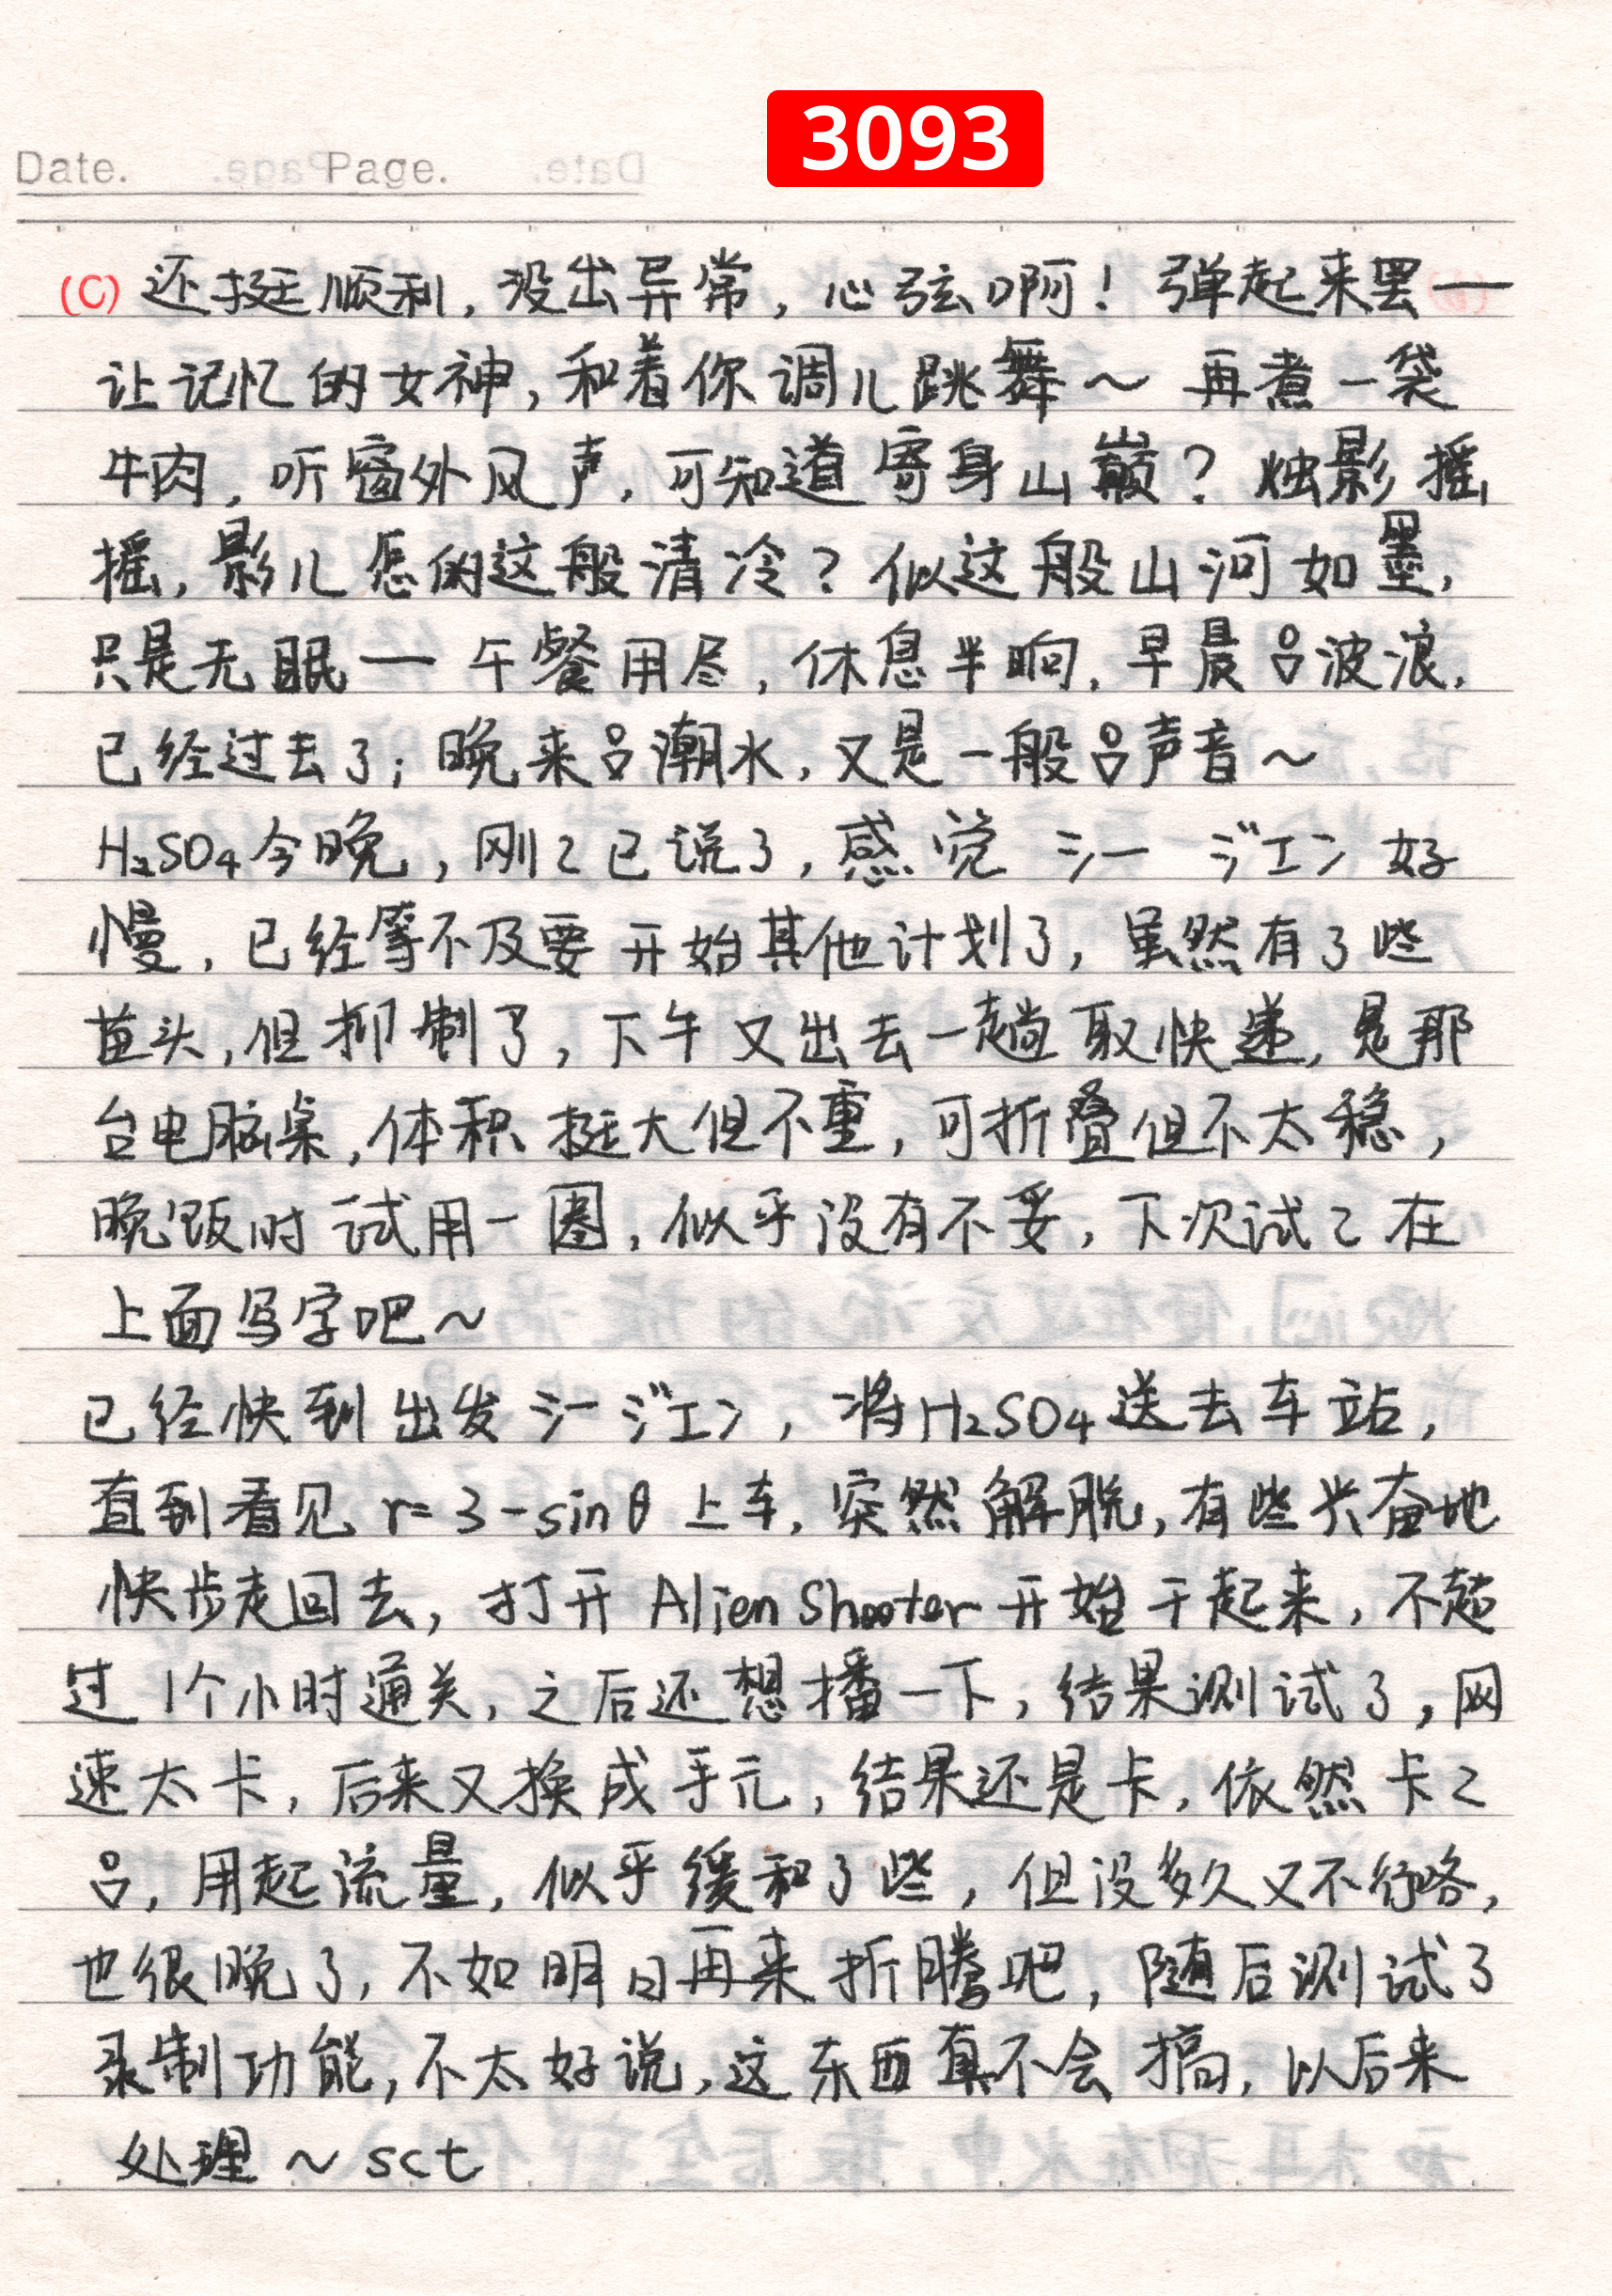 3093
Date. Page.
(C) 还挺顺利,没出异常,心弦啊!弹起来罢一
让记忆的女神,和着你调儿跳舞~ 再煮一袋
牛肉,听窗外风声,可知道寄身山巅?烛影摇
摇,影儿怎的这般清冷?似这般山河如墨,
只是无眠一 午餐用尽,休息半晌,早晨吕波浪,
已经过去了;晚来吕潮水,又是一般吕声音~
H₂SO₄今晚,刚々已说了,感觉 シー ジエン 好
慢,已经等不及要开始其他计划了,虽然有了些
苗头,但抑制了,下午又出去一趟取快递,是那
台电脑桌,体积挺大但不重,可折叠但不太稳,
晚饭时试用一圈,似乎没有不妥,下次试々在
上面写字吧~
已经快到出发シージエン,将H₂SO₄送去车站,
直到看见 r=3-sinθ 上车,突然解脱,有些兴奋地
快步走回去,打开 Alien Shooter 开始干起来,不超
过1个小时通关,之后还想播一下,结果测试了,网
速太卡,后来又换成手元,结果还是卡,依然卡々
吕,用起流量,似乎缓和了些,但没多久又不行咯,
也很晚了,不如明日再来折腾吧,随后测试了
录制功能,不太好说,这东西真不会搞,以后来
处理~ sct